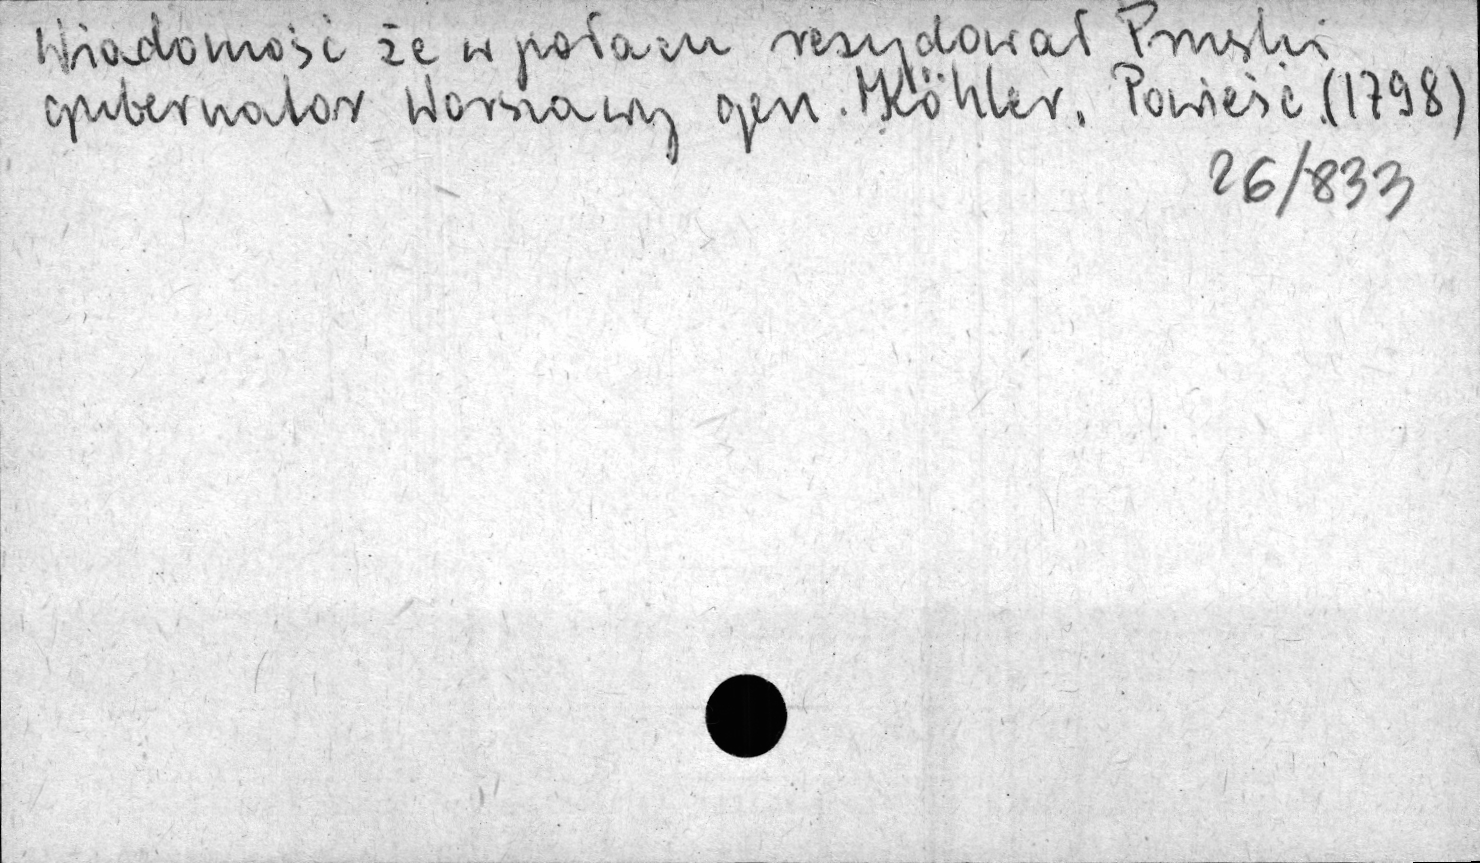 Wiadomość że w pałacu rezydował Pruski
gubernator Warszawy gen. Köhler. Powieść (1798)
26/833